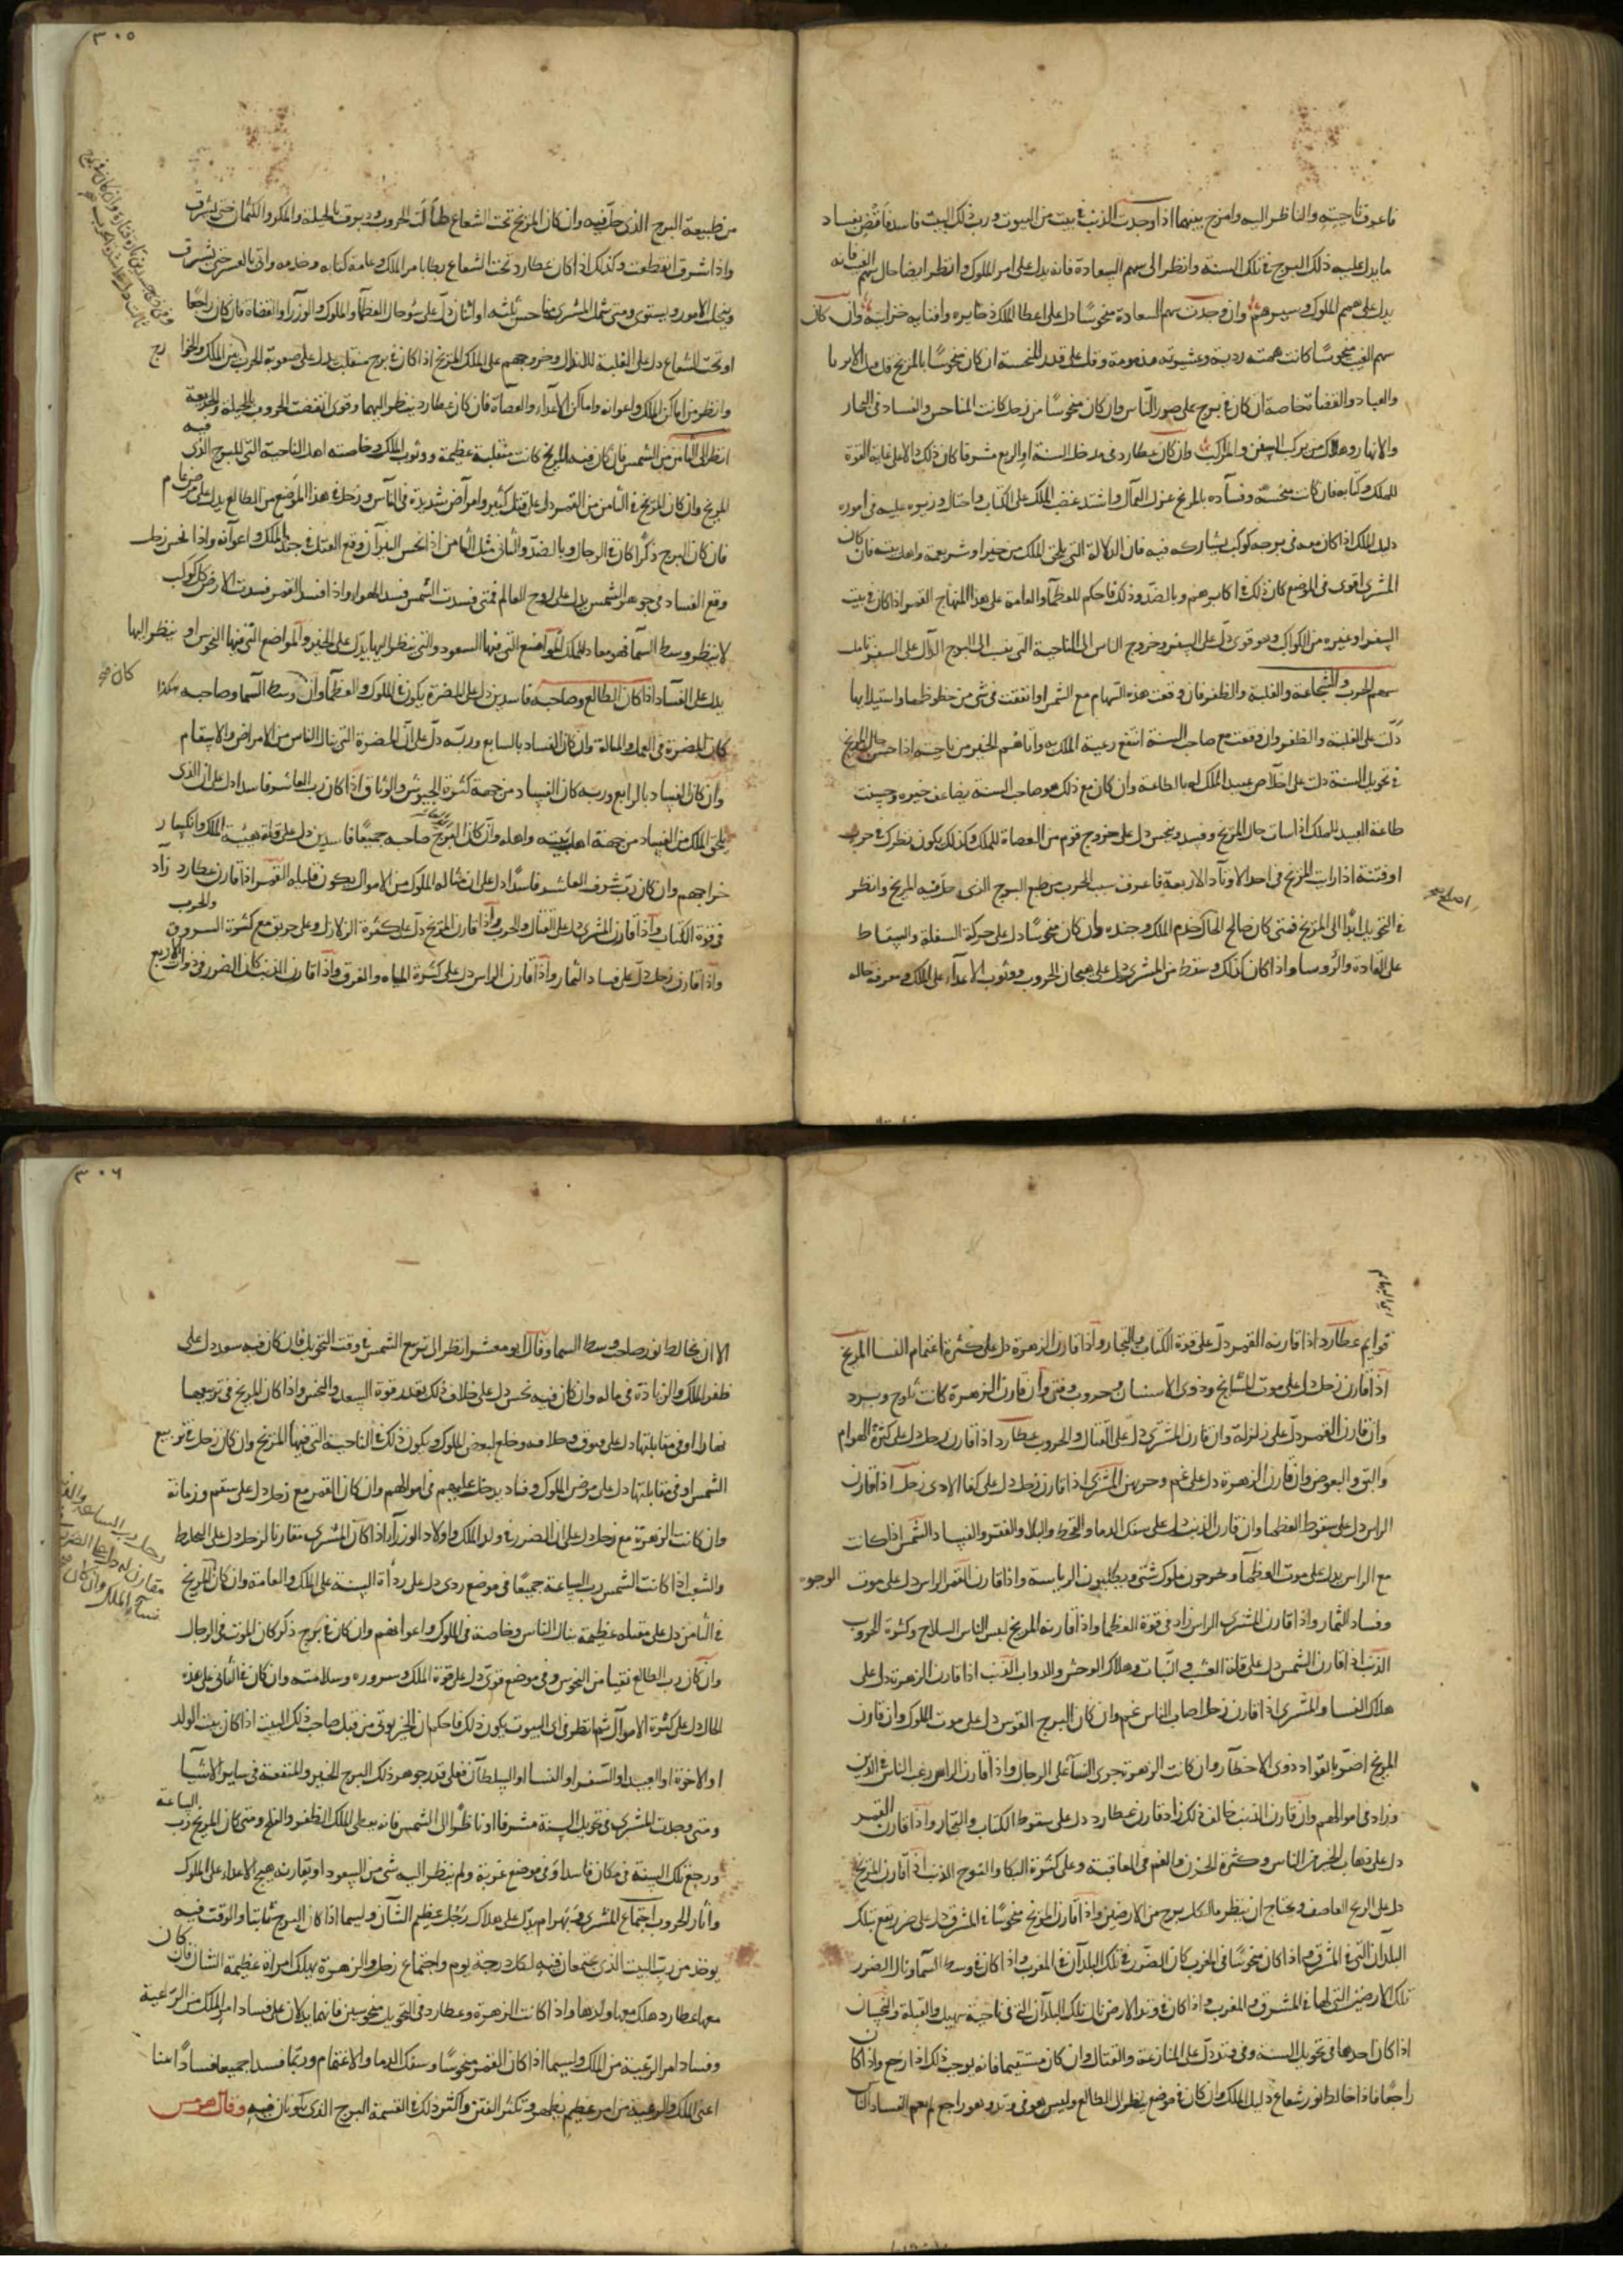 فاعرف ناحيته والناظر اليه وامزج بينهما اذا وجدت الذنب في بيت من البيوت ورب ذلك البيت فاسد فاقض بفساد
ما يدل عليه ذلك البرج في تلك السنة وانظر الى سهم السعادة فانه يدل على امر الملوك وانظر ايضا حال سهم الغيب فانه
يدل على همم الملوك وسيرهم وان وجدت سهم السعادة منحوسا دل على اعطا الملك ذخايره وافنايه خزاينه وان كان
سهم الغيب منحوسا كانت همته ردية وعشيرته مذمومة وقل على قدر المنحسة ان كان منحوسا بالمريخ
والعباد والقضاة خاصة ان كان في برج على صور الناس وان كان منحوسا من زحل كانت المناحس والفساد في البحار
والانهار وهلاك من يركب السفن والمراكب وان كان عطارد في مدخل السنة او الربع مشرقا كان ذلك دالا على غاية القوة
للملك وكتابه فان كانت منحسته وفساده بالمريخ عزل العمال واشتد غضب الملك على الكتاب واحتال وزيره عليه في اموره
دليل الملك اذا كان معه في برجه كوكب يشاركه فيه فان الدلالة التي تلحق الملك من خير او شر يعمه واهل بيته فان كان
المشتري اقوى في الموضع كان ذلك في اكابرهم وبالضد وذلك فاحكم للعظما والعامة على هذا المنهاج القمر اذا كان في بيت
السفر او غيره من الكواكب وهو قوي دل على السفر وخروج الناس الى الناحية التي ينسب الى البرج الدال على السفر
سهم الحرب والشجاعة والغلبة والظفر فان وقعت هذه السهام مع الشمس او اتفقت في شي من حظوظها واستيلايها
دلت على الغلبة والظفر وان وقعت مع صاحب السنة انتفع رعية الملك به واتاهم الخير من ناحيته اذا حسن حال المريخ
في تحويل السنة دلت على اخلاص عبيد الملك له بالطاعة وان كان مع ذلك هو صاحب السنة يضاعف خيره وحسنت
طاعة العبيد للملك اذا ساءت حال المريخ وفسد ونحس دل على خروج قوم من العصاة للملك وكذلك يكون نظرك في حرب
او فتنة اذا رايت المريخ في احد الاوتاد الاربعة فاعرف سبب الحرب من طبع البرج الذي حل فيه المريخ وانظر
في التحويل ابدا الى المريخ فمتى كان صالح الحال خدم الملك وجنده وان كان منحوسا دل على حركة السفلة والسقاط
على القادة والروسا واذا كان كذلك وسقط من المشتري دل على هيجان الحروب ووثوب الاعدا على الملك ومعرفة حاله
٣٠٥
من طبيعة البرج الذي حل فيه وان كان المريخ تحت الشعاع طالت الحروب ودبرت بالحيلة والمكر والكتمان حتى يشرق
واذا شرق انقطعت وكذلك اذا كان عطارد تحت الشعاع بامر الملك وعامة كتابه وخدمه واتى بالعسر حتى يشرق
وينجلي الامور ويستوي ومتى شمل المشتري مناحس ثلثه او اثنان دل على سوء حال العظما والملوك والوزرا والقضاة فان كان راجعا
او تحت الشعاع دل على الغلبة وخروجهم على الملك المريخ اذا كان في برج منقلب دل على صعوبة الحرب من الملك والخوارج
وانظر من اماكن الملك واعوانه واماكن الاعداء والعصاة فان كان عطارد ينظر اليهما وقوي انقضت الحروب بالحيلة والخديعة
انظر الى الثامن من الشمس فان كان فيه المريخ كانت مقتلة عظيمة ووثوب بالملك وخاصته اهل الناحية التي للبرج الذي فيه
المريخ وان كان المريخ في الثامن من القمر دل على قتل كثير وامراض شديدة في الناس وزحل في هذا الموضع من الطالع يدل على مرض عام
فان كان البرج ذكرا كان في الرجال وبالضد والثاني مثل الثامن اذا نحس النيران وقع القتل في جند الملك واعوانه واذا نحس زحل
وقع الفساد في جوهر الشمس يدل على روح العالم فمتى فسدت الشمس فسد الهواء واذا فسد القمر فسدت الارض كل كوكب
لا ينظر وسط السما فهو معاد للملك المواضع التي فيها السعود والتي ينظر اليها يدل على الخير والمواضع التي فيها النحوس او ينظر اليها
يدل على الفساد اذا كان الطالع وصاحبه فاسدين دل على المضرة يكون في الملوك والعظما وان كان وسط السما وصاحبه هكذا
كان المضرة في العمل والمالة وان كان الفساد بالسابع وربه دل على ان المضرة التي ينال الناس من الامراض والاسقام
وان كان الفساد بالرابع وربه كان الفساد من جهة كثرة الجيوش والوثاق اذا كان رب العاشر فاسدا دل على ان الذي
يلحق الملك من الفساد من جهة اهل بيته واهله وان كان البرج صاحبه جميعا فاسدين دل على قلة هيبة الملك وانكسار
خراجهم وان كان رب شرف العاشر فاسدا دل على ان مناله الملوك من الاموال يكون قليله القمر اذا قارن عطارد زاد
في قوة الكتاب واذا قارن المشتري دل على القتال والحرب واذا قارن المريخ دل على كثرة الزلازل وعلى حريق مع كثرة السروق والحرب
واذا قارن زحل دل على فساد الثمار واذا قارن الراس دل على كثرة المياه والغرق واذا قارن الذنب كان الضرر في ذوات الاربع
قوايم عطارد اذا قارنه القمر دل على قوة الكتاب والتجار واذا قارن الزهرة دل على كثرة اغتمام النسا المريخ
اذا قارن زحل دل على موت المشايخ وذوي الاسنان وحروب وفتن وان قارن الزهرة كانت ثلوج وبرد
وان قارن القمر دل على زلزلة وان قارن المشتري دل على القتال والحروب عطارد اذا قارن زحل دل على كثرة الهوام
والبق والبعوض وان قارن الزهرة دل على غم وحزن المشتري اذا قارن زحل دل على زحل اذا قارن
الراس دل على سقوط العظما وان قارن الذنب دل على سفك الدما والقحط والبلا والفقر والفساد الشمس اذا كانت
مع الراس يدل على موت العظما ويخرجون ملوك شتى ويطلبون الرياسة واذا قارن القمر الراس دل على موت الوجوه
وفساد الثمار واذا قارن المشتري الراس زاد في قوة العظما واذا قارنه المريخ لبس الناس السلاح وكثرة الحروب
الذنب اذا قارن الشمس دل على قلة العشب والنبات وهلاك الوحش والدواب الذنب اذا قارن الزهرة دل على
هلاك النسا والمشتري اذا قارن زحل اصاب الناس غم وان كان البرج القوس دل على موت الملوك وان قارن
المريخ اضر بالقواد ذوي الاخطار وان كانت الزهرة جرى النسا على الرجال واذا قارن الراس رغب الناس في الدين
وزاد في اموالهم وان قارن الذنب خالف ذلك زاد قارن عطارد دل على سقوط الكتاب والتجار واذا قارن القمر
دل على ذهاب الخير من الناس وكثرة الحزن والغم في العاقبة وعلى كثرة البكا والنوح الذنب اذا قارن المريخ
دل على الريح العاصف ويحتاج ان ينظر مال كل برج من الارضين واذا قارن المريخ منحوسا في المشرق دل على ضرر يقع بتلك
البلدان التي في المشرق واذا كان منحوسا في المغرب كان الضرر في تلك البلدان في المغرب واذا كان في وسط السما ونال الضرر
تلك الارضين التي لها في المشرق والمغرب واذا كان في وتد الارض نال تلك البلدان التي في ناحية سهيل والقبلة والنحسان
اذا كان احدها في تحويل السنة وفي وتد دل على المنازعة والقتال وان كان مستقيما فانه يوجب ذلك اذا رجع واذا كان
راجعا فاذا خالط نور شعاع دليل الملك وان كان في موضع ينظر الى الطالع وليس هو في وتد وهو راجع لم يعم الفساد
٣٠٦
الا ان يخالط نور صاحب وسط السما وقال ابو معشر انظر الى تربيع الشمس في وقت التحويل فان كان فيه سعود دل على
ظفر الملك والزيادة في ماله وان كان فيه نحس دل على خلاف ذلك بقدر قوة السعد والنحس واذا كان المريخ في تربيعها
نهارا او في مقابلتها دل على وخلع لبعض الملوك ويكون ذلك في الناحية التي فيها المريخ وان كان زحل في تربيع
الشمس او في مقابلتها دل على مرض الملوك وفساد يدخل عليهم في اموالهم وان كان القمر مع زحل دل على سقم وزمانة
وان كانت الزهرة مع زحل دل على ان الضرر في ولد الملك واولاد الوزرا اذا كان المشتري مقارنا لزحل دل على القحط
والشغب اذا كانت الشمس رب الساعة جميعا في موضع ردي دل على رداة السنة على الملك والعامة وان كان المريخ
في الثامن دل على مقتله عظيمة ينال الناس وخاصة في الملوك واعوانهم وان كان في برج ذكر كان الموت في الرجال
وان كان رب الطالع نقيا من النحوس وفي موضع قوي دل على قوة الملك وسروره وسلامته وان كان في الثاني على هذه
الحال دل على كثرة الاموال ثم انظر في اي البيوت يكون ذلك فاحكم ان الخير يوتى من قبل صاحب ذلك البيت اذا كان بيت الولد
او الاخوة او العبيد او السفر او النسا او السلطان فعلى قدر جوهر ذلك البرج الخير والمنفعة في ساير الاشيا
ومتى وجدت المشتري في تحويل السنة مشرقا او ناظرا الى الشمس فانه يعطي الملك الظفر والفلج ومتى كان المريخ رب الساعة
ورجع تلك السنة في مكان فاسد او في موضع غربة ولم ينظر اليه شي من السعود او يقارنه هيج الاعداء على الملوك
واثار الحروب اجتماع المشتري وبهرام يدل على هلاك رجل عظيم الشان ولسيما اذا كان البرج ثابتا والوقت فيه
يوخذ من رب البيت الذي يجتمعان فيه لكل درجة يوم واجتماع زحل والزهرة يهلك امراة عظيمة الشان فان كان
معها عطارد هلك معها ولدها واذا كانت الزهرة وعطارد في التحويل منحوسين فانهما يدلان على فساد امر الملك من الرعية
وفساد امر الرعية من الملك ولسيما اذا كان القمر منحوسا وسفك الدما والاغتمام وربما فسدا جميعا فسادا
اعني الملك والرعية من امر عظيم يظهر وتكثر الفتن واكثر ذلك في القسمة البرج الذي يكونان فيه وقال هرمس